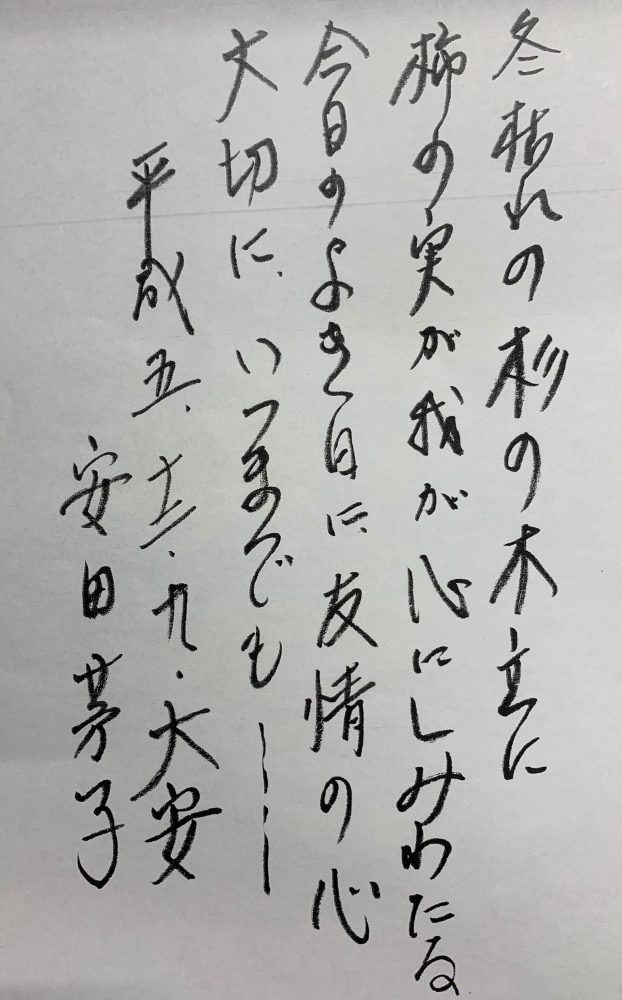 冬枯れの杉の木立に
柿の実が我が心にしみわたる
今日のよき日に友情の心
大切に、いつまでも――
平成五、十二・九・大安
安田芳子